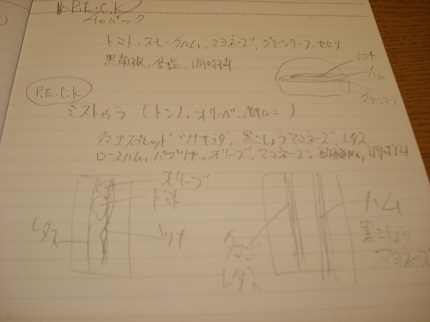 P.E.C.K
チャバック
トマト、スモークハム、マヨネーズ、グリーンリーフ、セロリ
黒胡椒、岩塩、調味料
トマト
ハム
グリーンリーフ
P.E.C.K
ミストゥラ (トン、オリーベ、
タマゴスプレッド ツナサラダ、黒こしょうマヨネーズ、レタス
ロースハム、パプリカ、オリーブ、マヨネーズ、調味料
オリーブ
トマト
レタス
ツナ
ハム
黒こしょう
マヨネーズ
タマゴ
レタス